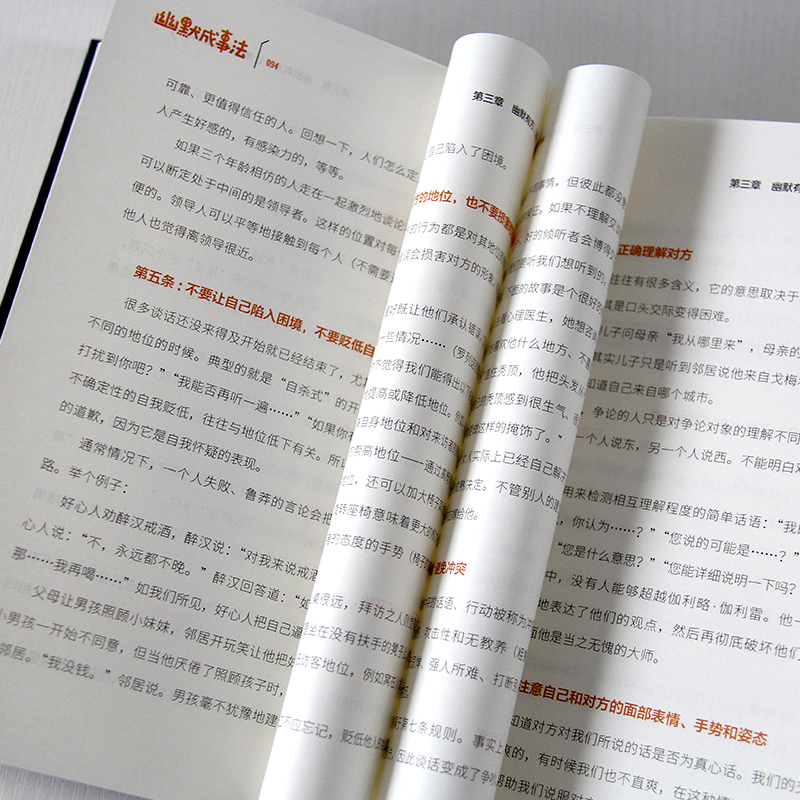 幽默成事法
094
可靠、更值得信任的人。回想一下，人们怎么定
人产生好感的，有感染力的，等等。
如果三个年龄相仿的人走在一起激烈地谈论
可以断定处于中间的是领导者。这样的位置对每
便的。领导人可以平等地接触到每个人（不需要
他人也觉得离领导很近。
第五条：不要让自己陷入困境，不要贬低自
很多谈话还没来得及开始就已经结束了，尤
不同的地位的时候。典型的就是“自杀式”的开
打扰到你吧？”“我能否再听一遍……”“如果你
不确定性的自我贬低，往往与地位低下有关。所以
的道歉，因为它是自我怀疑的表现。
通常情况下，一个人失败、鲁莽的言论会把
路。举个例子：
好心人劝醉汉戒酒，醉汉说：“对我来说戒酒
心人说：“不，永远都不晚。”醉汉回答道：“如
那……我再喝……”如我们所见，好心人把自己逼
父母让男孩照顾小妹妹，邻居开玩笑让他把好
小男孩一开始不同意，但当他厌倦了照顾孩子时，
邻居。“我没钱。”邻居说。男孩毫不犹豫地建
第三章 幽默有
自己陷入了困境。
的地位，也不要损害
的行为都是对其地位
候会损害对方的形象
好既让他们承认错误
一些情况……（罗列
不觉得我们能得出以下
提高或降低地位。
自身地位和对来访者
崇高地位——通过
位，还可以加大椅子
转座椅意味着更大的
的态度的手势（椅子
桌很远，拜访之人则
坐在没有扶手的凳子
访客地位，例如
不应忘记，贬低他人
事情，但彼此都没
如果不理解父
好的倾听者会博得
们想听到的。
面的故事是个很好的
心理医生，她想咨
欢他什么地方、不
秃顶，他把头发
的秃顶感到很生气、
这样的掩饰了。”
人实际上已经自己解决
决定。不管别人的
免冲突
的话语、行动被称为冲
攻击性和无教养（
强人所难、打断
第七条规则。事实上
因此谈话变成了争
第三章 幽默有
正确理解对方
往往有很多含义，它的意思取决于
其是口头交际变得困难。
儿子问母亲“我从哪里来”，母亲的
其实儿子只是听到邻居说他来自戈梅
知道自己来自哪个城市。
争论的人只是对争论对象的理解不同
一个人说东，另一个人说西。不能明白对
用来检测相互理解程度的简单话语：“我
，你认为……？”“您说的可能是……？”
“您是什么意思？”“您能详细说明一下吗？
中，没有人能够超越伽利略·伽利雷。他一
地表达了他们的观点，然后再彻底破坏他们
他是当之无愧的大师。
注意自己和对方的面部表情、手势和姿态
知道对方对我们所说的话是否为真心话。我们的
爽的，有时候我们也不直爽，在这种情
帮助我们说服对方